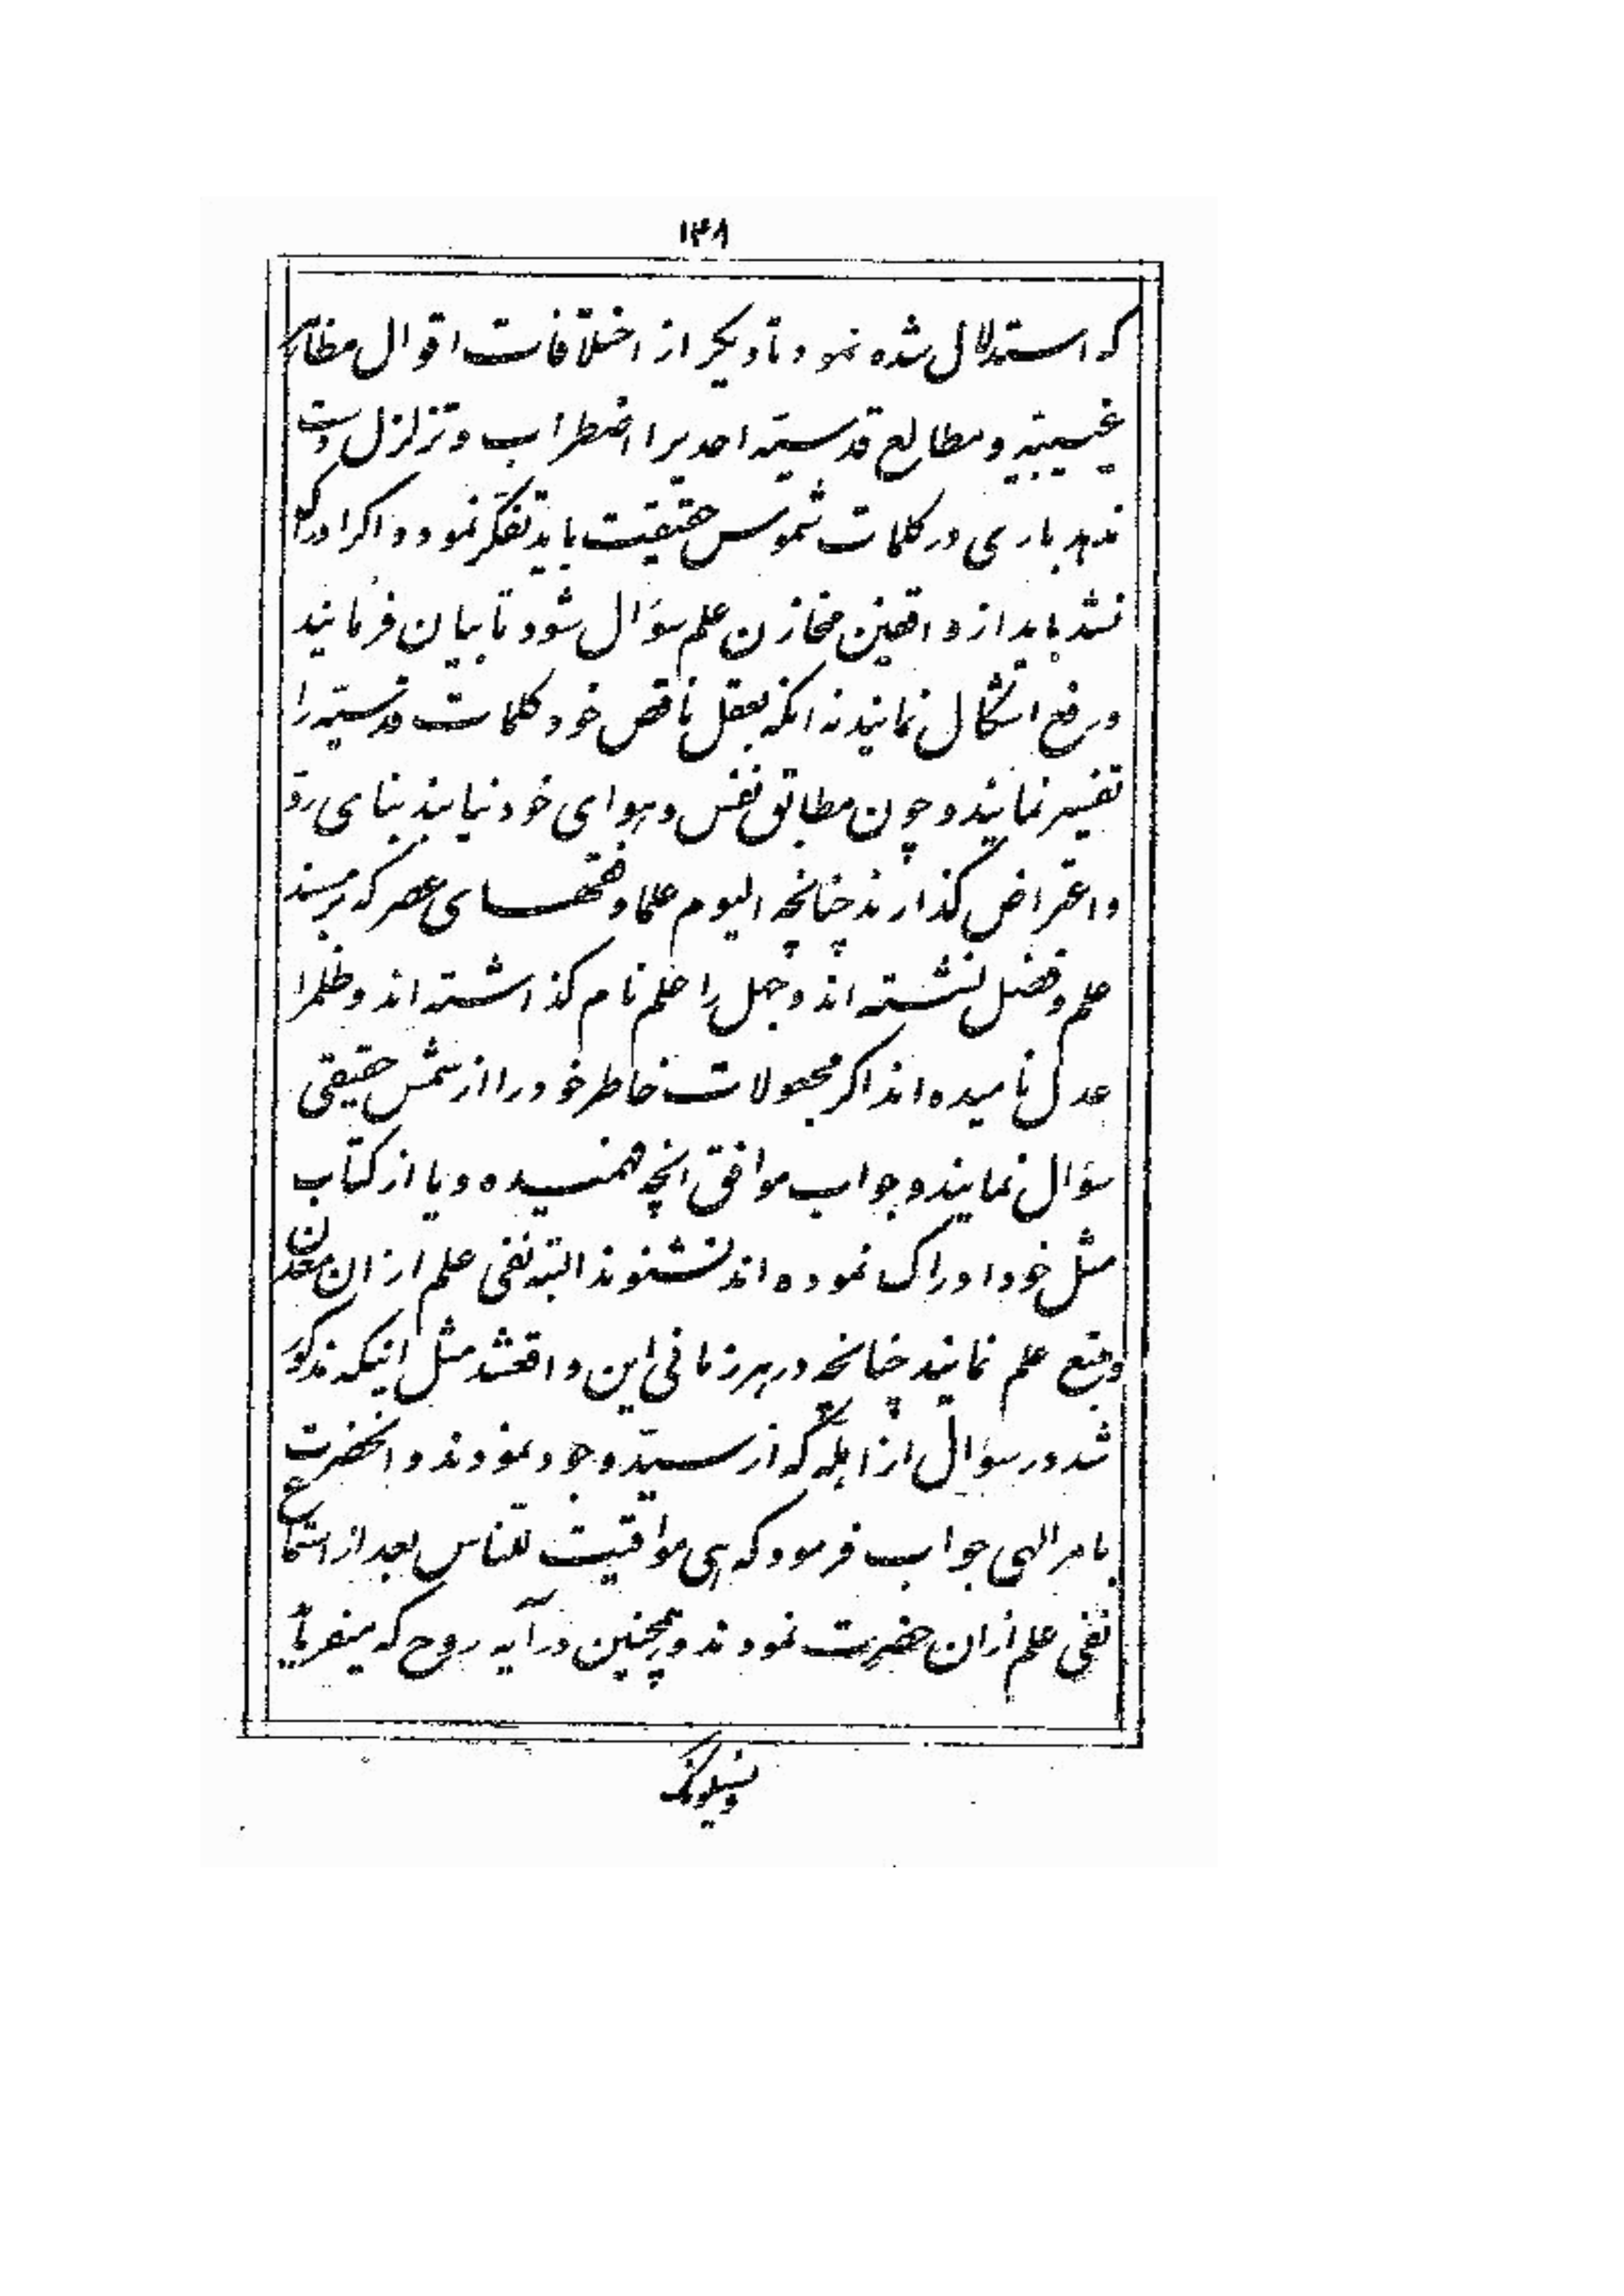 ١٣٨
که استدلال شده نمود تا دیگر از اختلافات اقوال مظاهر
غیبیّه و مطالع قدسیّه احدیرا اضطراب و تزلزل دست
ندهد باری در کلمات شموس حقیقت باید تفکّر نمود و اگر ادراک
نشد باید از واقفین مخازن علم سؤال شود تا بیان فرمایند
و رفع اشکال نمایند نه انکه بعقل ناقص خود کلمات قدسیّه را
تفسیر نمایند و چون مطابق نفس و هوای خود نیابند بنای ردّ
و اعتراض گذارند چنانچه الیوم علما و فقهای عصر که بر مسند
علم و فضل نشسته اند و جهل را علم نام گذاشته اند و ظلمرا
عدل نامیده اند اگر مجعولات خاطر خود را از شمس حقیقی
سؤال نمایند و جواب موافق انچه فهمیده و یا از کتاب
مثل خود ادراک نموده اند نشنوند البتّه نفی علم از ان معدن
و منبع علم نمایند چنانچه در هر زمانی این واقعشد مثل اینکه مذکور
شد در سؤال از اهلّه که از سیّد وجود نمودند و انحضرت
بامر الهی جواب فرمود که هی مواقیت للنّاس بعد از استماع
نفی علم از ان حضرت نمودند و همچنین در آیه روح که میفرماید
و یسئلونک